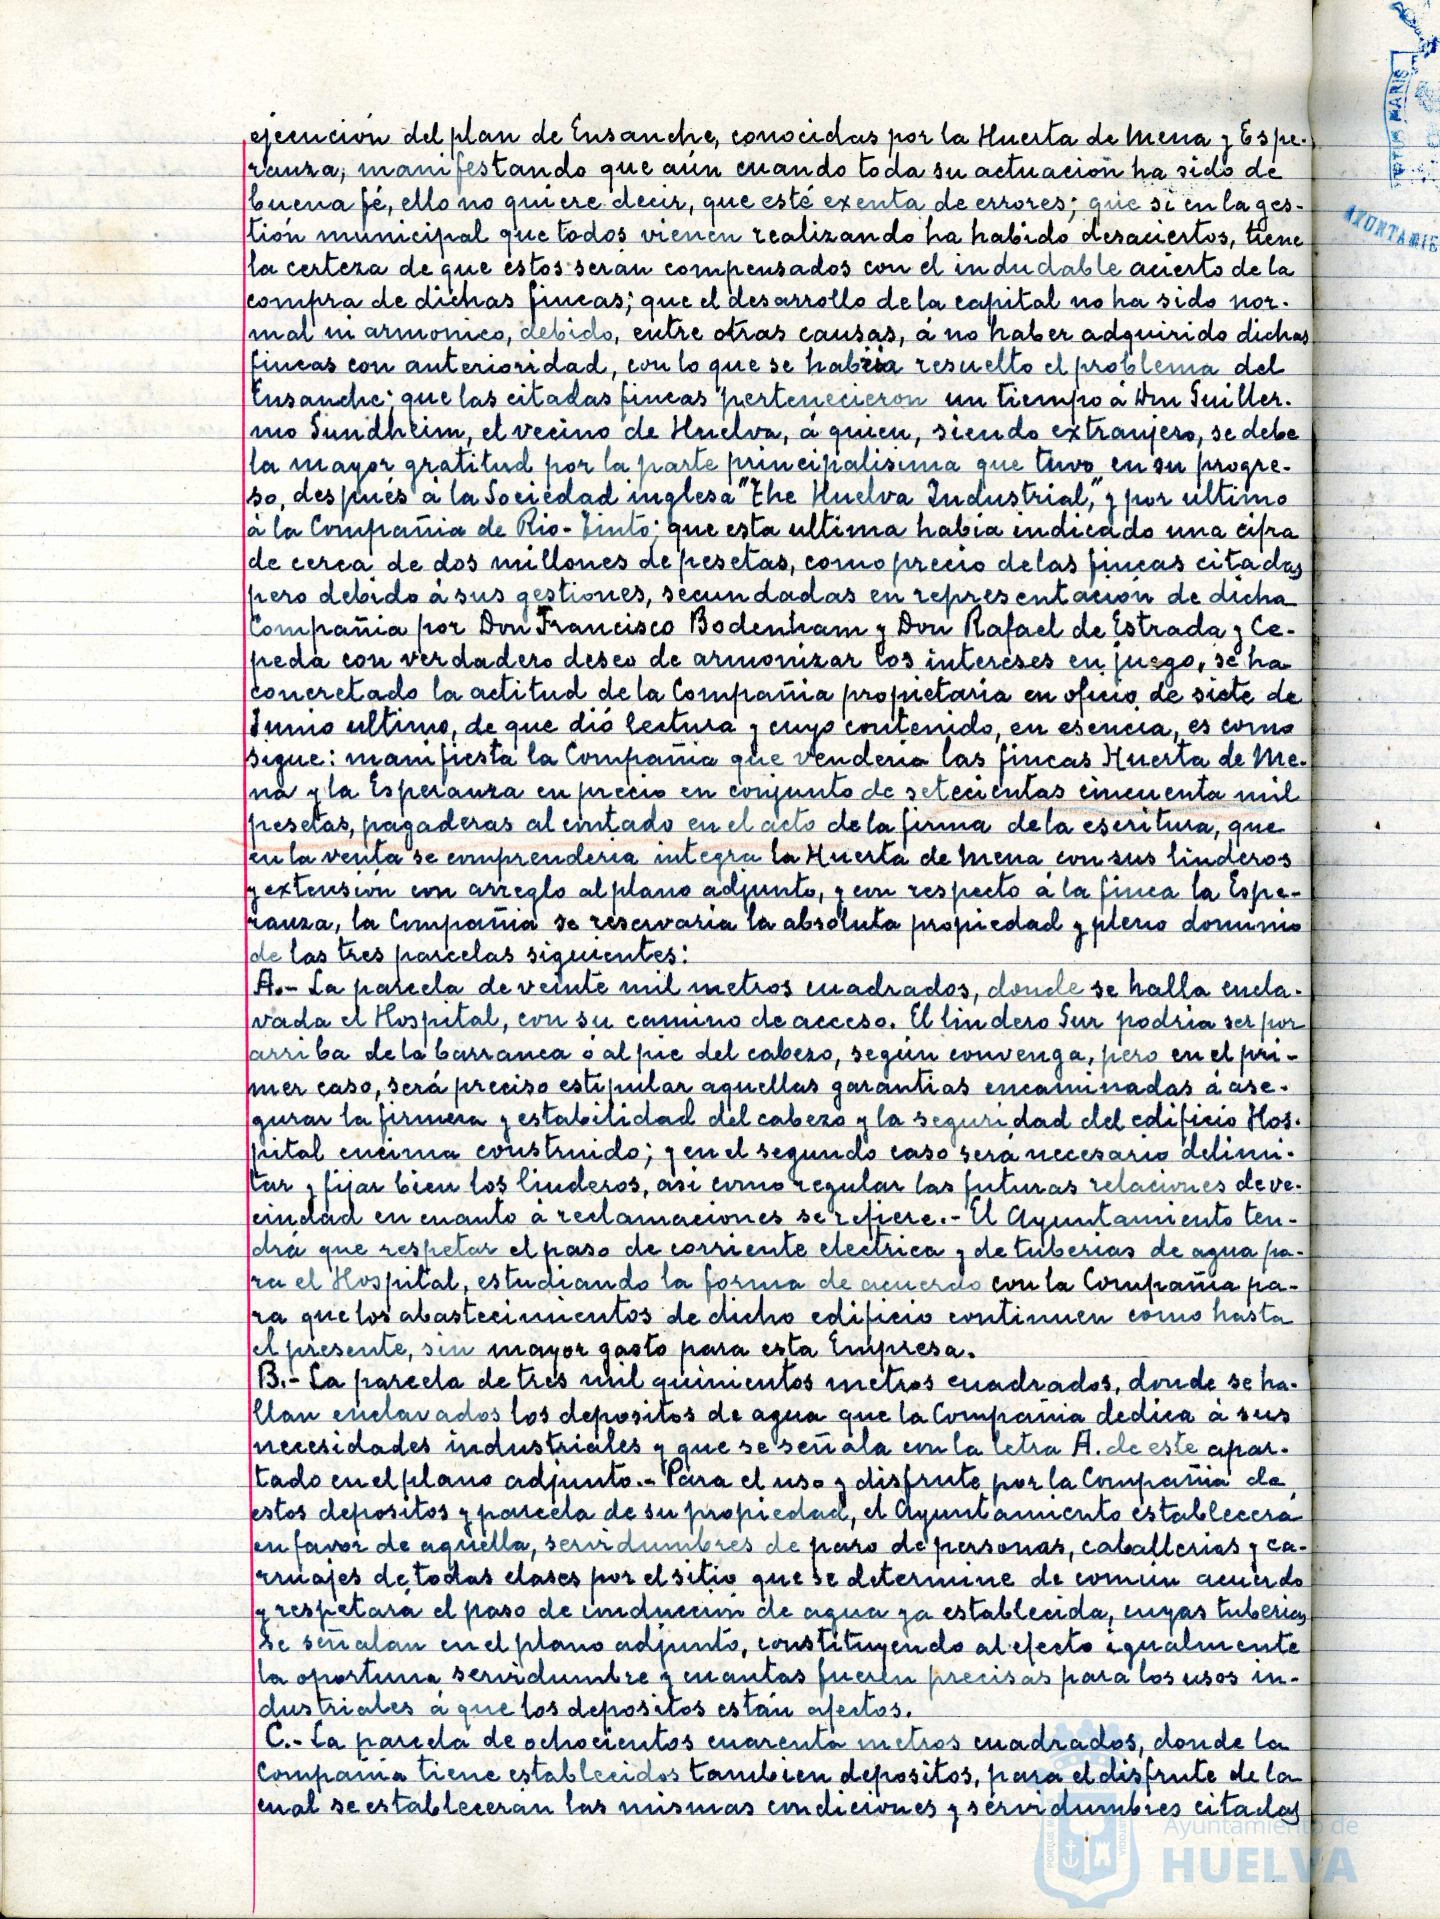 ejecución del plan de Ensanche, conocidas por la Huerta de Mena y Espe-
ranza, manifestando que aún cuando toda su actuación ha sido de
buena fé, ello no quiere decir, que esté exenta de errores; que si en la ges-
tión municipal que todos vienen realizando ha habido desaciertos, tiene
la certeza de que estos serán compensados con el indudable acierto de la
compra de dichas fincas; que el desarrollo de la capital no ha sido nor-
mal ni armonico, debido, entre otras causas, á no haber adquirido dichas
fincas con anterioridad, con lo que se habria resuelto el problema del
Ensanche; que las citadas fincas pertenecieron un tiempo á Don Guiller-
mo Sundheim, el vecino de Huelva, á quien, siendo extranjero, se debe
la mayor gratitud por la parte principalisima que tuvo en su progre-
so, después á la Sociedad inglesa "The Huelva Industrial," y por ultimo
á la Compañia de Rio-Tinto; que esta ultima habia indicado una cifra
de cerca de dos millones de pesetas, como precio de las fincas citadas
pero debido á sus gestiones, secundadas en representación de dicha
Compañia por Don Francisco Bodenham y Don Rafael de Estrada y Ce-
peda con verdadero deseo de armonizar los intereses en juego, se ha
concretado la actitud de la Compañia propietaria en oficio de siete de
Junio ultimo, de que dió lectura y cuyo contenido, en esencia, es como
sigue: manifiesta la Compañia que venderia las fincas Huerta de Me-
na y la Esperanza en precio en conjunto de setecientas cincuenta mil
pesetas, pagaderas al contado en el acto de la firma de la escritura, que
en la venta se comprenderia integra la Huerta de Mena con sus linderos
y extensión con arreglo al plano adjunto, y con respecto á la finca la Espe-
ranza, la Compañia se reservaria la absoluta propiedad y pleno dominio
de las tres parcelas siguientes:
A.- La parcela de veinte mil metros cuadrados, donde se halla encla-
vada el Hospital, con su camino de acceso. El lindero Sur podria ser por
arriba de la barranca ó al pie del cabezo, según convenga, pero en el pri-
mer caso, será preciso estipular aquellas garantias encaminadas á ase-
gurar la firmeza y estabilidad del cabezo y la seguridad del edificio Hos-
pital encima construido; y en el segundo caso será necesario delimi-
tar y fijar bien los linderos, asi como regular las futuras relaciones de ve-
cindad en cuanto á reclamaciones se refiere.- El Ayuntamiento ten-
drá que respetar el paso de corriente electrica y de tuberias de agua pa-
ra el Hospital, estudiando la forma de acuerdo con la Compañia pa-
ra que los abastecimientos de dicho edificio continuen como hasta
el presente, sin mayor gasto para esta Empresa.
B.- La parcela de tres mil quinientos metros cuadrados, donde se ha-
llan enclavados los depositos de agua que la Compañia dedica á sus
necesidades industriales y que se señala con la letra A. de este apar-
tado en el plano adjunto.- Para el uso y disfrute por la Compañia de
estos depositos y parcela de su propiedad, el Ayuntamiento establecerá
en favor de aquella, servidumbres de paso de personas, caballerias y ca-
rruajes de todas clases por el sitio que se determine de común acuerdo
y respetará el paso de conducción de agua ya establecida, cuyas tuberias
se señalan en el plano adjunto, constituyendo al efecto igualmente
la oportuna servidumbre y cuantas fueren precisas para los usos in-
dustriales á que los depositos están afectos.
C.- La parcela de ochocientos cuarenta metros cuadrados, donde la
Compañia tiene establecidos tambien depositos, para el disfrute de la
cual se establecerán las mismas condiciones y servidumbres citadas
Ayuntamiento de
HUELVA